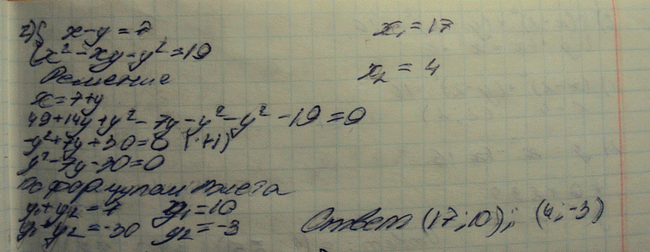 2) { x-y=7
x²-xy-y²=19
Решение
x=7+y
49+14y+y²-7y-y²-y²-19=0
-y²+7y+30=0 (·+1)
y²-7y-30=0
по формулам Виета
y₁+y₂=7 y₁=10
y₁·y₂=-30 y₂=-3
x₁=17
x₂=4
Ответ (17;10); (4;-3)